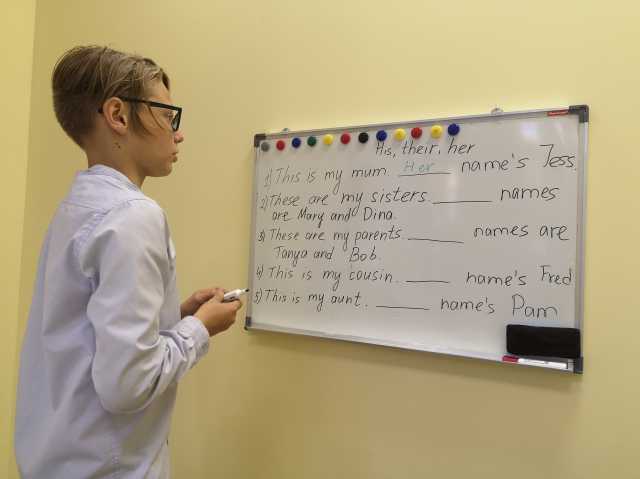 His, their, her
1) This is my mum. Her name's Jess.
2) These are my sisters. ______ names
are Mary and Dina.
3) These are my parents. ______ names are
Tanya and Bob.
4) This is my cousin. ______ name's Fred
5) This is my aunt. ______ name's Pam